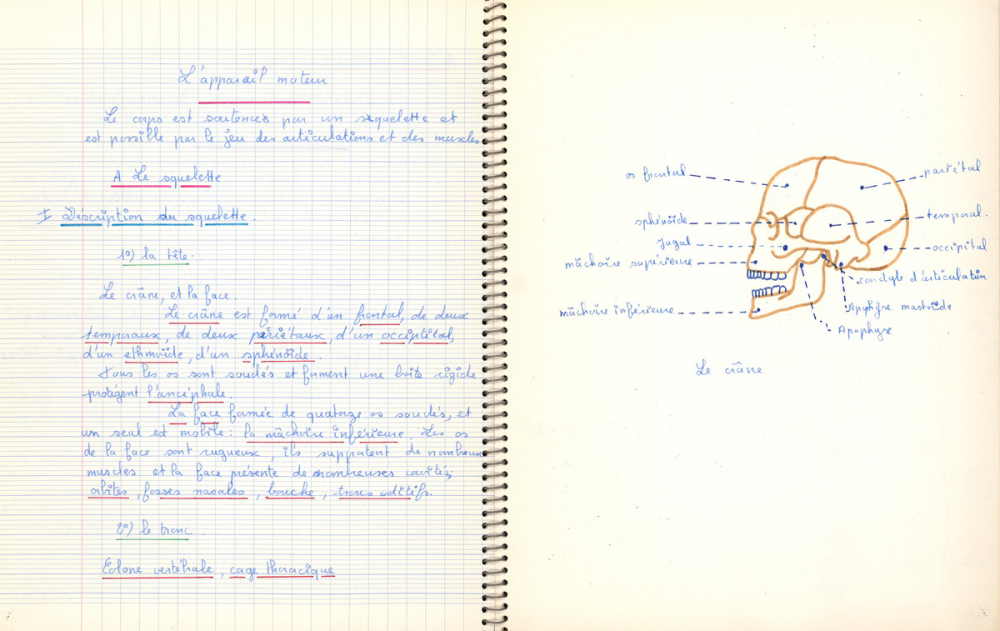 L'appareil moteur
Le corps est soutenus par un squelette et
est possible par le jeu des articulations et des muscles
A Le squelette
I Description du squelette.
1°) la tête.
Le crâne, et la face.
Le crâne est formé d'un frontal, de deux
temporaux, de deux pariétaux, d'un occipital,
d'un ethmoïde, d'un sphénoïde.
tous les os sont soudés et forment une boîte rigide
protégent l'ancéphale.
La face formée de quatorze os soudés, et
un seul est mobile : la mâchoire inférieure. Les os
de la face sont rugueux, ils supportent de nombreux
muscles et la face présente de nombreuses cavités,
orbites, fosses nasales, bouche, trous oditifs.
2°) le tronc.
Colone vertébrale, cage thoracique
os frontal
pariétal
sphénoïde
temporal.
Jugal
occipital
mâchoire supérieure
condyle d'articulation
mâchoire inférieure
Apophyse mastoïde
Apophyse
Le crâne